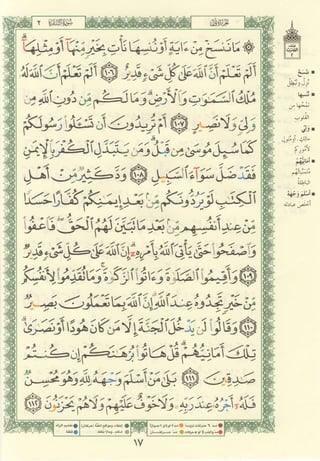 سُورَةُ البَقَرَةِ ٢
۞ مَا نَنسَخْ مِنْ ءَايَةٍ أَوْ نُنسِهَا نَأْتِ بِخَيْرٍ مِّنْهَآ أَوْ مِثْلِهَآ ۗ
أَلَمْ تَعْلَمْ أَنَّ ٱللَّهَ عَلَىٰ كُلِّ شَىْءٍ قَدِيرٌ ١٠٦ أَلَمْ تَعْلَمْ أَنَّ ٱللَّهَ لَهُۥ
مُلْكُ ٱلسَّمَـٰوَٰتِ وَٱلْأَرْضِ ۗ وَمَا لَكُم مِّن دُونِ ٱللَّهِ مِن
وَلِىٍّ وَلَا نَصِيرٍ ١٠٧ أَمْ تُرِيدُونَ أَن تَسْـَٔلُوا۟ رَسُولَكُمْ
كَمَا سُئِلَ مُوسَىٰ مِن قَبْلُ ۗ وَمَن يَتَبَدَّلِ ٱلْكُفْرَ بِٱلْإِيمَـٰنِ
فَقَدْ ضَلَّ سَوَآءَ ٱلسَّبِيلِ ١٠٨ وَدَّ كَثِيرٌ مِّنْ أَهْلِ
ٱلْكِتَـٰبِ لَوْ يَرُدُّونَكُم مِّنۢ بَعْدِ إِيمَـٰنِكُمْ كُفَّارًا حَسَدًا
مِّنْ عِندِ أَنفُسِهِم مِّنۢ بَعْدِ مَا تَبَيَّنَ لَهُمُ ٱلْحَقُّ ۖ فَٱعْفُوا۟
وَٱصْفَحُوا۟ حَتَّىٰ يَأْتِىَ ٱللَّهُ بِأَمْرِهِۦٓ ۗ إِنَّ ٱللَّهَ عَلَىٰ كُلِّ شَىْءٍ قَدِيرٌ
١٠٩ وَأَقِيمُوا۟ ٱلصَّلَوٰةَ وَءَاتُوا۟ ٱلزَّكَوٰةَ ۚ وَمَا تُقَدِّمُوا۟ لِأَنفُسِكُم
مِّنْ خَيْرٍ تَجِدُوهُ عِندَ ٱللَّهِ ۗ إِنَّ ٱللَّهَ بِمَا تَعْمَلُونَ بَصِيرٌ
١١٠ وَقَالُوا۟ لَن يَدْخُلَ ٱلْجَنَّةَ إِلَّا مَن كَانَ هُودًا أَوْ نَصَـٰرَىٰ ۗ
تِلْكَ أَمَانِيُّهُمْ ۗ قُلْ هَاتُوا۟ بُرْهَـٰنَكُمْ إِن كُنتُمْ
صَـٰدِقِينَ ١١١ بَلَىٰ مَنْ أَسْلَمَ وَجْهَهُۥ لِلَّهِ وَهُوَ مُحْسِنٌ
فَلَهُۥٓ أَجْرُهُۥ عِندَ رَبِّهِۦ وَلَا خَوْفٌ عَلَيْهِمْ وَلَا هُمْ يَحْزَنُونَ ١١٢
١٧